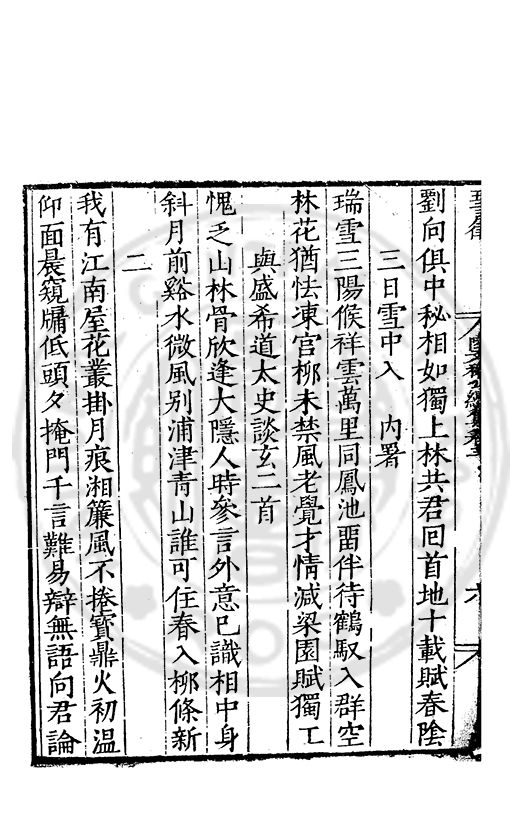 劉向俱中秘相如獨上林共君回首地十載賦春陰
三日雪中入　内署
瑞雪三陽候祥雲萬里同鳳池畱伴待鶴馭入群空
林花猶怯凍宮柳未禁風老覺才情減梁園賦獨工
與盛希道太史談玄二首
愧乏山林骨欣逢大隱人時參言外意已識相中身
斜月前谿水微風别浦津青山誰可住春入柳條新
二
我有江南屋花叢掛月痕湘簾風不捲寶鼎火初温
仰面晨窺牖低頭夕掩門千言難易辯無語向君論